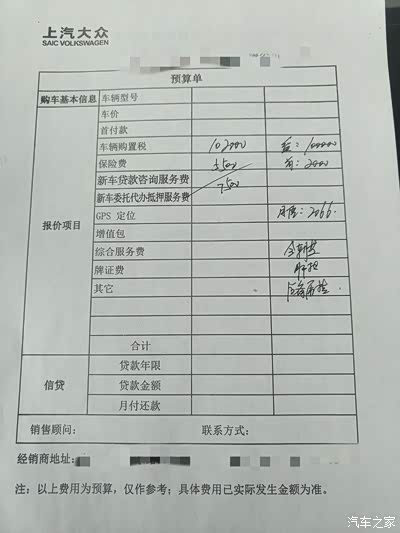 上汽大众
SAIC VOLKSWAGEN
预算单
购车基本信息 车辆型号
车价
首付款
车辆购置税 102000 100000
保险费 3500 2000
新车贷款咨询服务费
7500
新车委托代办抵押服务费
报价项目
GPS 定位 2066.
增值包
综合服务费
牌证费
其它
合计
信贷
贷款年限
贷款金额
月付还款
销售顾问： 联系方式：
经销商地址：
注：以上费用为预算，仅作参考；具体费用已实际发生金额为准。
汽车之家